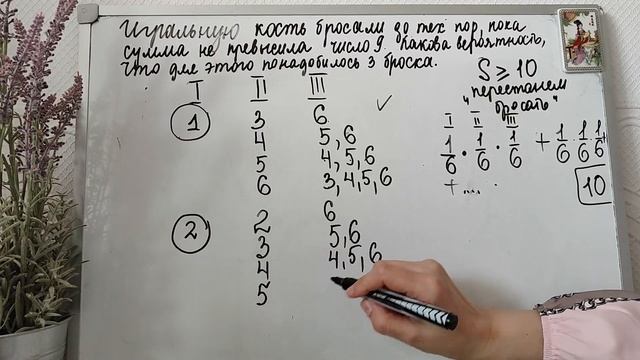 Игральную кость бросали до тех пор, пока
сумма не превысила число 9. Какова вероятность,
что для этого понадобилось 3 броска.
S ⩾ 10
"перестанем
бросать"
I II III
① 3 6
4 5, 6
5 4, 5, 6
6 3, 4, 5, 6
② 2 6
3 5, 6
4 4, 5, 6
5
I II III
1/6 · 1/6 · 1/6 + 1/6 1/6 1/6 +
+ ....
10